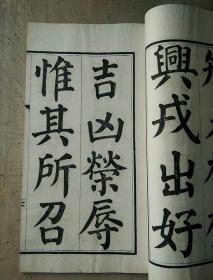 興戎出好
吉凶榮辱
惟其所召